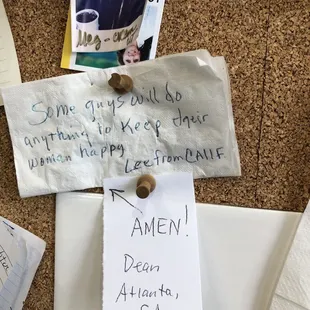 Some guys will do
anything to keep their
woman happy
Lee from CALIF
AMEN!
Dean
Atlanta,
GA